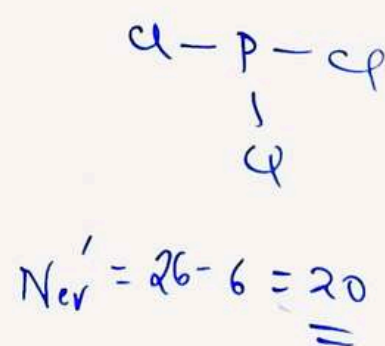 Cl — P — Cl
|
Cl
Nev' = 26 - 6 = 20